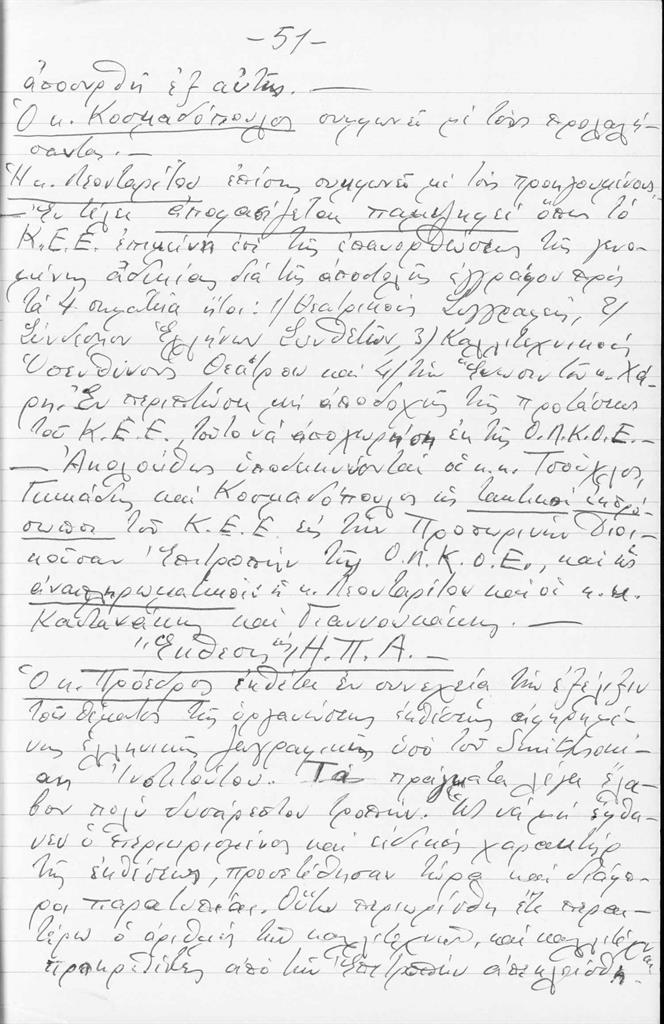 - 51 -
ἀποσυρθῆ ἐξ αὐτῆς. —
Ὁ κ. Κοσμαδόπουλος συμφωνεῖ μὲ τοὺς προλαλή-
σαντας. —
Ἡ κ. Λεονταρίτου ἐπίσης συμφωνεῖ μὲ τοὺς προηγουμένους.
— Ἐν τέλει ἀποφασίζεται παμψηφεί ὅπως τὸ
Κ.Ε.Ε. ἐπιμείνῃ ἐπὶ τῆς ἐπανορθώσεως τῆς γενο-
μένης ἀδικίας διὰ τῆς ἀποστολῆς ἐγγράφου πρὸς
τὰ 4 σωματεῖα ἤτοι: 1/ Θεατρικοὺς Συγγραφεῖς, 2/
Σύνδεσμον Ἑλλήνων Συνθετῶν, 3/ Καλλιτεχνικοὺς
Ὑπευθύνους Θεάτρου καὶ 4/ τὴν Ἕνωσιν τοῦ κ. Χά-
ρη. Ἐν περιπτώσει μὴ ἀποδοχῆς τῆς προτάσεως
τοῦ Κ.Ε.Ε., τοῦτο νὰ ἀποχωρήσῃ ἐκ τῆς Ο.Λ.Κ.Ο.Ε. —
— Ἀκολούθως ὑποδεικνύονται οἱ κ.κ. Τσούχλος,
Γιμκάδης καὶ Κοσμαδόπουλος ὡς τακτικοὶ ἐκπρό-
σωποι τοῦ Κ.Ε.Ε. εἰς τὴν Προσωρινὴν Διοι-
κοῦσαν Ἐπιτροπὴν τῆς Ο.Λ.Κ.Ο.Ε., καὶ ὡς
ἀναπληρωματικοί: ἡ κ. Λεονταρίτου καὶ οἱ κ.κ.
Κατζανάκης καὶ Γιαννουκάκης. —
"Ἔκθεσις εἰς Η.Π.Α. —
Ὁ κ. Πρόεδρος ἐκθέτει ἐν συνεχείᾳ τὴν ἐξέλιξιν
τοῦ θέματος τῆς ὀργανώσεως ἐκθέσεως ἀφηρημέ-
νης ἑλληνικῆς ζωγραφικῆς ὑπὸ τοῦ Smithsoni-
an Ἰνστιτούτου. Τὰ πράγματα λέγει ἔλα-
βον πολὺ δυσάρεστον τροπήν. Ὡς νὰ μὴ ἔφθα-
νεν ὁ περιωρισμένος καὶ εἰδικὸς χαρακτὴρ
τῆς ἐκθέσεως, προσετέθησαν τώρα καὶ διάφο-
ροι παρατυπίαι. Οὕτω περιωρίσθη ἔτι περαι-
τέρω ὁ ἀριθμὸς τῶν καλλιτεχνῶν, καὶ καλλιτέχναι
προκριθέντες ἀπὸ τὴν Ἐπιτροπὴν ἀπεκλείσθη-